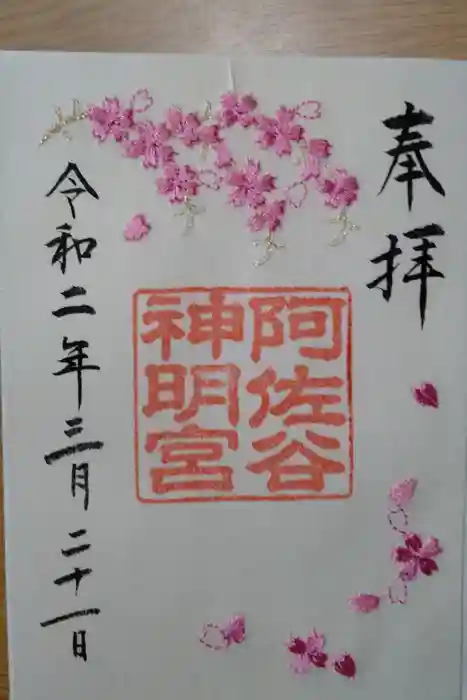 奉拝
阿佐谷
神明宮
令和二年三月二十一日